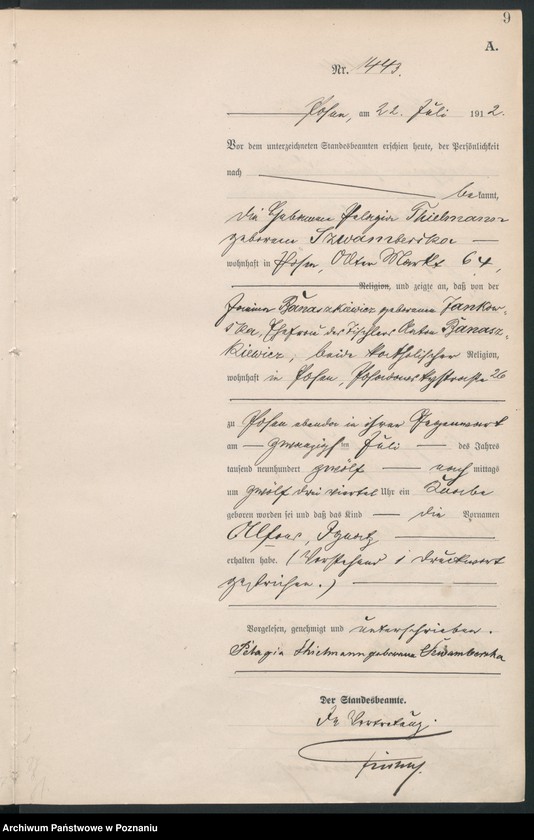 9
A.
Nr. 1443.
Posen, am 22. Juli 1912.
Vor dem unterzeichneten Standesbeamten erschien heute, der Persönlichkeit
nach
bekannt,
die Hebamme Pelagia Thielmann
geborene Szwamberska
wohnhaft in Posen, Alter Markt 64,
Religion, und zeigte an, daß von der
Banaszkiewicz geborenen Jankow-
ska, Ehefrau des Tischlers Anton Banasz-
kiewicz, beide katholischer Religion,
wohnhaft in Posen, Posadowskystraße 26
zu Posen ebenda in ihrer Gegenwart
am zwanzigsten Juli des Jahres
tausend neunhundert zwölf nach mittags
um zwölf drei viertel Uhr ein Knabe
geboren worden sei und daß das Kind die Vornamen
Alfons, Ignatz
erhalten habe. (Vorstehend 1 Druckwort
gestrichen.)
Vorgelesen, genehmigt und unterschrieben.
Pelagia Thielmann geborene Szwamberska
Der Standesbeamte.
In Vertretung.
Archiwum Państwowe w Poznaniu